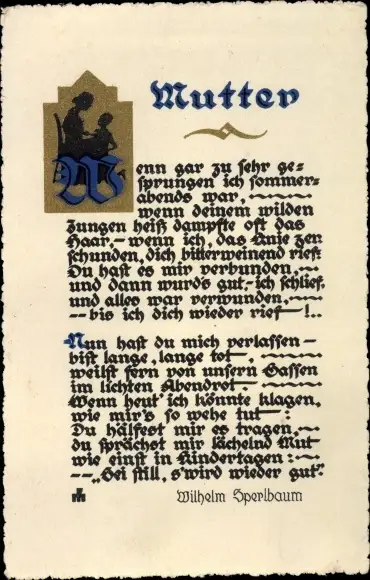 Mutter
Wenn gar zu sehr ge-
sprungen ich sommer-
abends war,
wenn deinem wilden
Jungen heiß dampfte oft das
Haar, – wenn ich, das Knie zer-
schunden, dich bitterweinend rief:
Du hast es mir verbunden, –
und dann wurd's gut, – ich schlief,
und alles war verwunden, –
-- bis ich dich wieder rief – !..
Nun hast du mich verlassen –
bist lange, lange tot,
weilst fern von unsern Gassen
im lichten Abendrot –
Wenn heut' ich könnte klagen,
wie mir's so wehe tut :
Du hälfest mir es tragen, –
du sprächst mir lächelnd Mut
wie einst in Kindertagen : –
-- „Sei still, s'wird wieder gut".
Wilhelm Sperlbaum